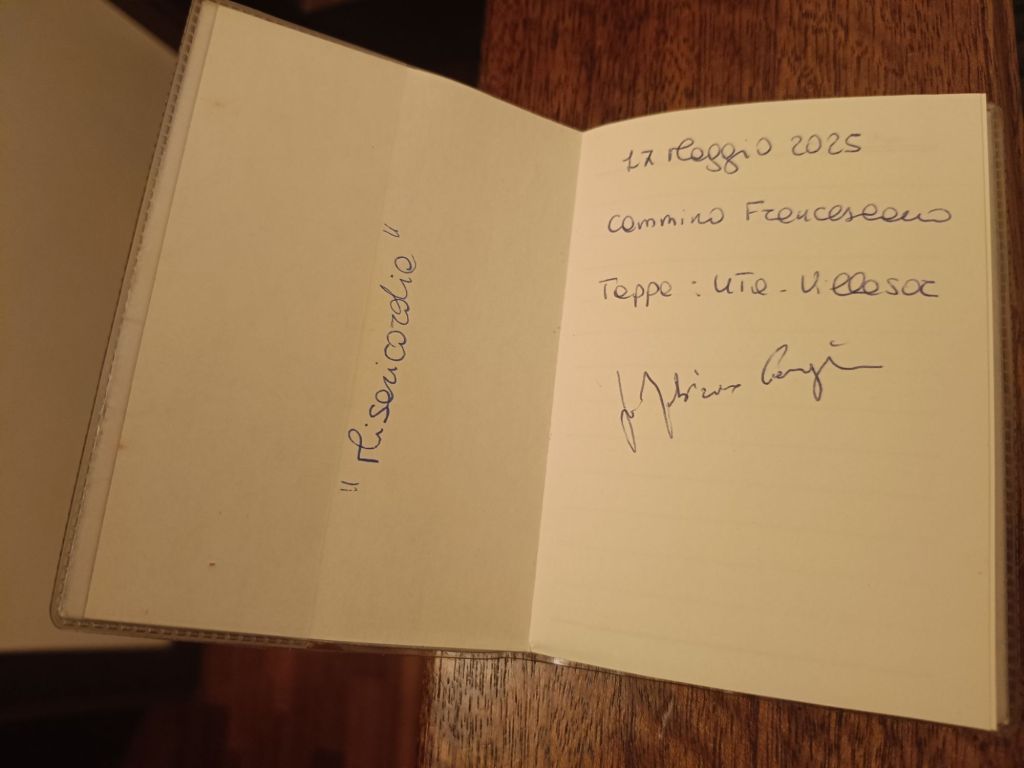 "Misericordia"
17 Maggio 2025
Cammino Francescano
Tappa: UTa - Villasor